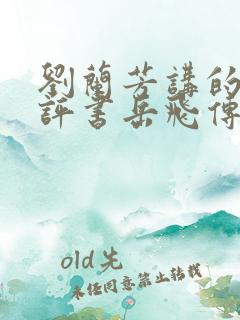 劉蘭芳講的
評書岳飛傳
old先
未经同意禁止转载